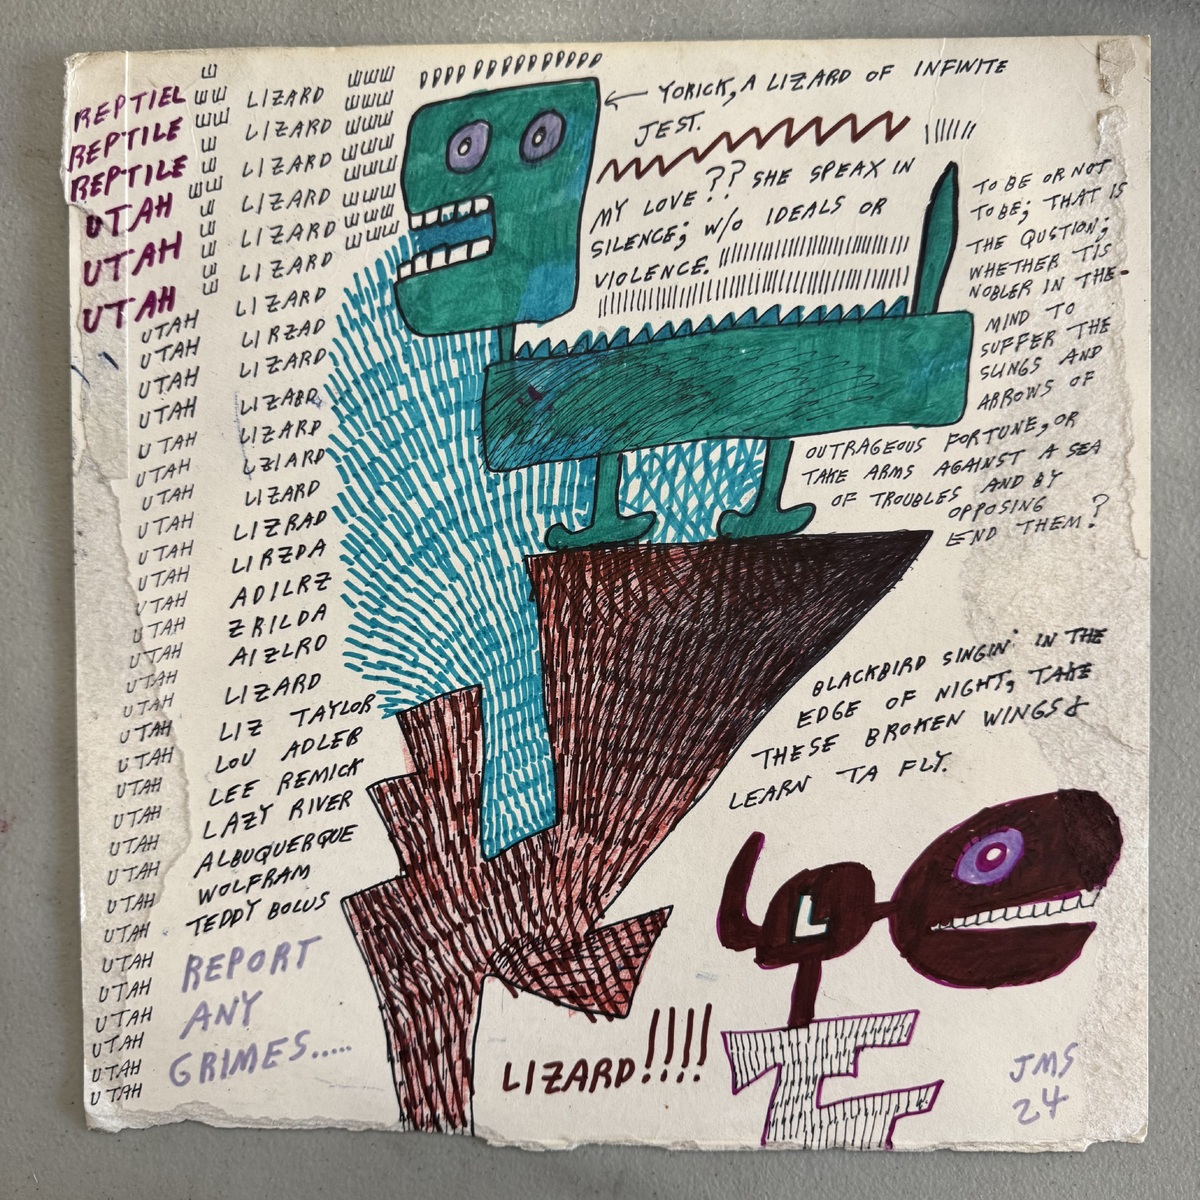 REPTIEL
REPTILE
REPTILE
UTAH
UTAH
UTAH
UTAH
UTAH
UTAH
UTAH
UTAH
UTAH
UTAH
UTAH
UTAH
UTAH
UTAH
UTAH
UTAH
UTAH
UTAH
UTAH
UTAH
UTAH
UTAH
UTAH
UTAH
UTAH
UTAH
UTAH
UTAH
UTAH
UTAH
UTAH
UTAH
LIZARD
LIZARD
LIZARD
LIZARD
LIZARD
LIZARD
LIZARD
LIRZAD
LIZARD
LIZARD
LIZARD
LZIARD
LIZARD
LIZRAD
LIRZDA
ADILRZ
ZRILDA
AIZLRO
LIZARD
LIZ TAYLOR
LOU ADLER
LEE REMICK
LAZY RIVER
ALBUQUERQUE
WOLFRAM
TEDDY BOLUS
REPORT
ANY
GRIMES.....
DDDD DDDDDDDDDD
YORICK, A LIZARD OF INFINITE
JEST.
MY LOVE?? SHE SPEAX IN
SILENCE; W/O IDEALS OR
VIOLENCE.
TO BE OR NOT
TO BE; THAT IS
THE QUSTION;
WHETHER TIS
NOBLER IN THE-
MIND TO
SUFFER THE
SLINGS AND
ARROWS OF
OUTRAGEOUS FORTUNE, OR
TAKE ARMS AGAINST A SEA
OF TROUBLES AND BY
OPPOSING
END THEM?
BLACKBIRD SINGIN' IN THE
EDGE OF NIGHT, TAKE
THESE BROKEN WINGS &
LEARN TA FLY.
L
LIZARD!!!!
JMS
24